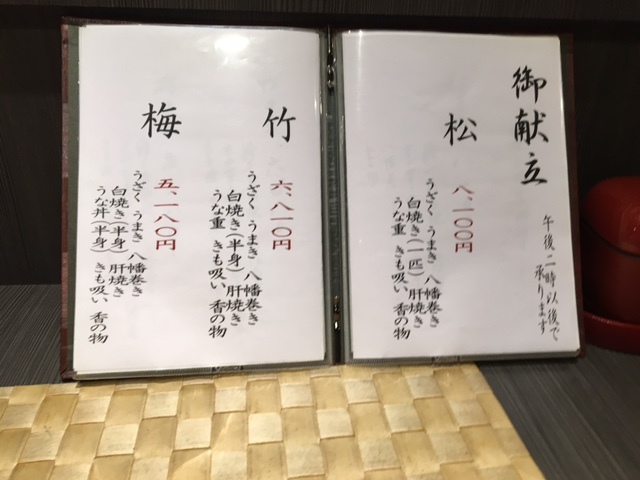 御献立
午後二時以後で
承ります
松
八、一〇〇円
うざく うまき 八幡巻き
白焼き(一匹)肝焼き
うな重 きも吸い 香の物
竹
六、八一〇円
うざく うまき 八幡巻き
白焼き(半身)肝焼き
うな重 きも吸い 香の物
梅
五、一八〇円
うざく うまき 八幡巻き
白焼き(半身)肝焼き
うな丼(半身)きも吸い 香の物